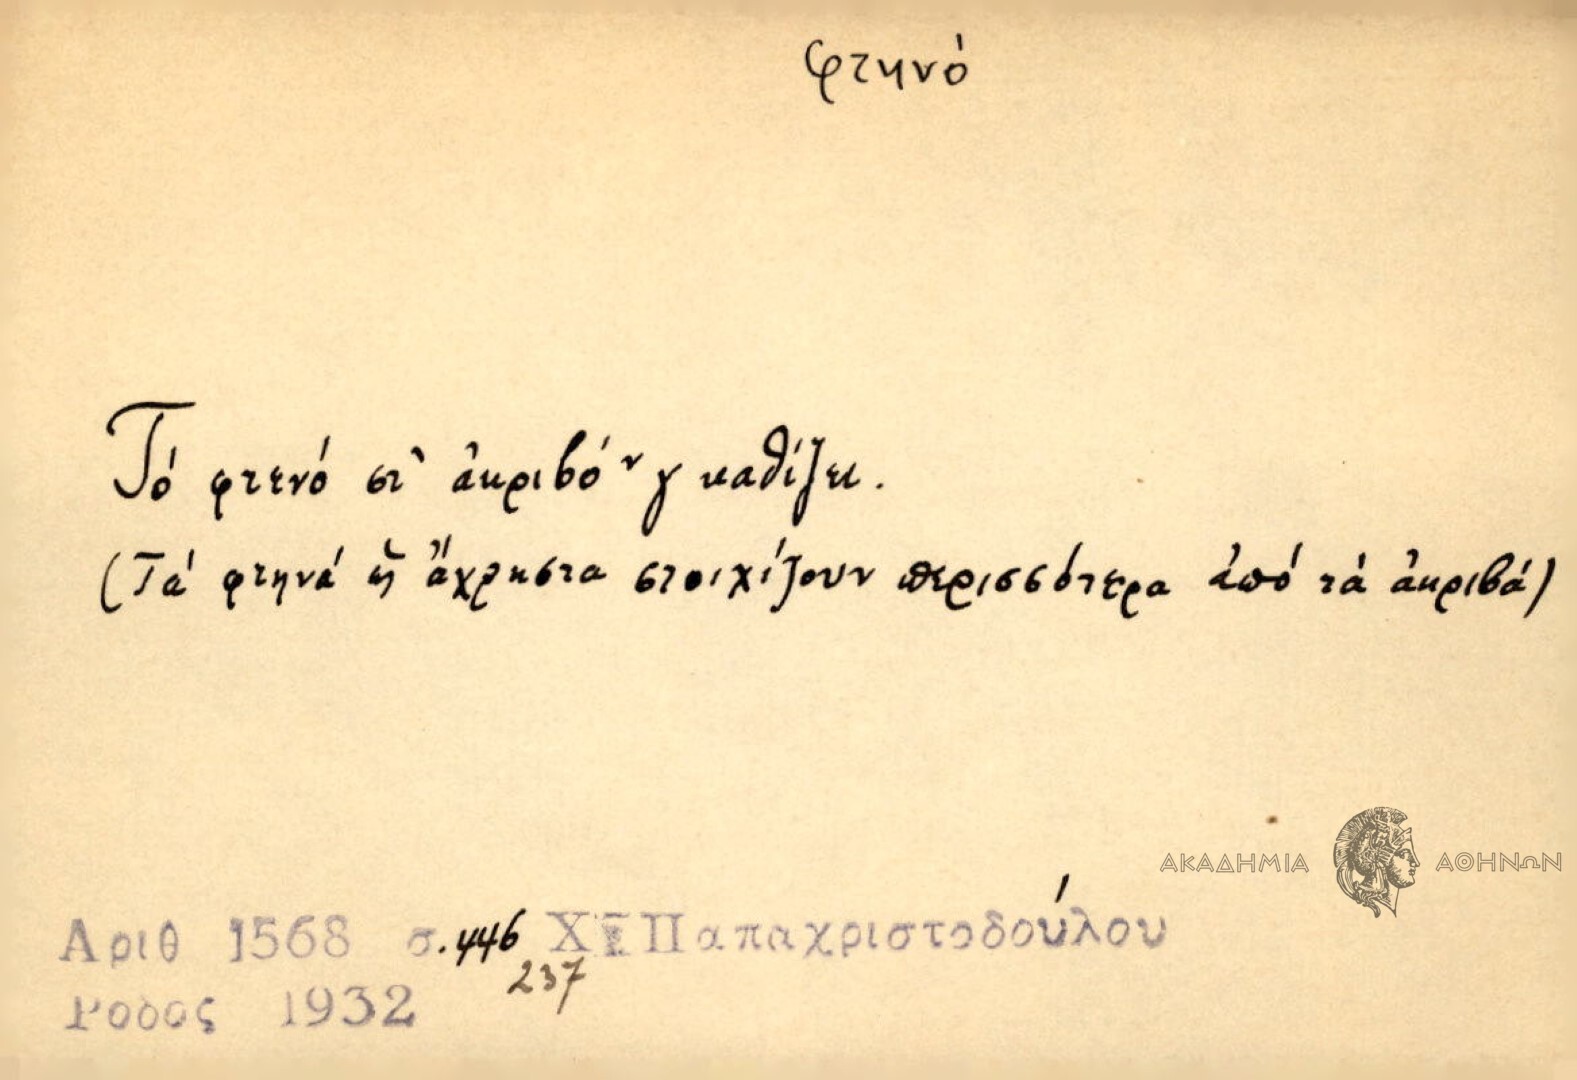 φτηνό
Τό φτενό στ' ἀκριβό ν γ καθίζει.
(Τά φτηνά ἤ ἄχρηστα στοιχίζουν περισσότερα ἀπό τά ἀκριβά)
ΑΚΑΔΗΜΙΑ ΑΘΗΝΩΝ
Αριθ 1568 σ. 446 Χ Παπαχριστοδούλου
237
Ροδος 1932